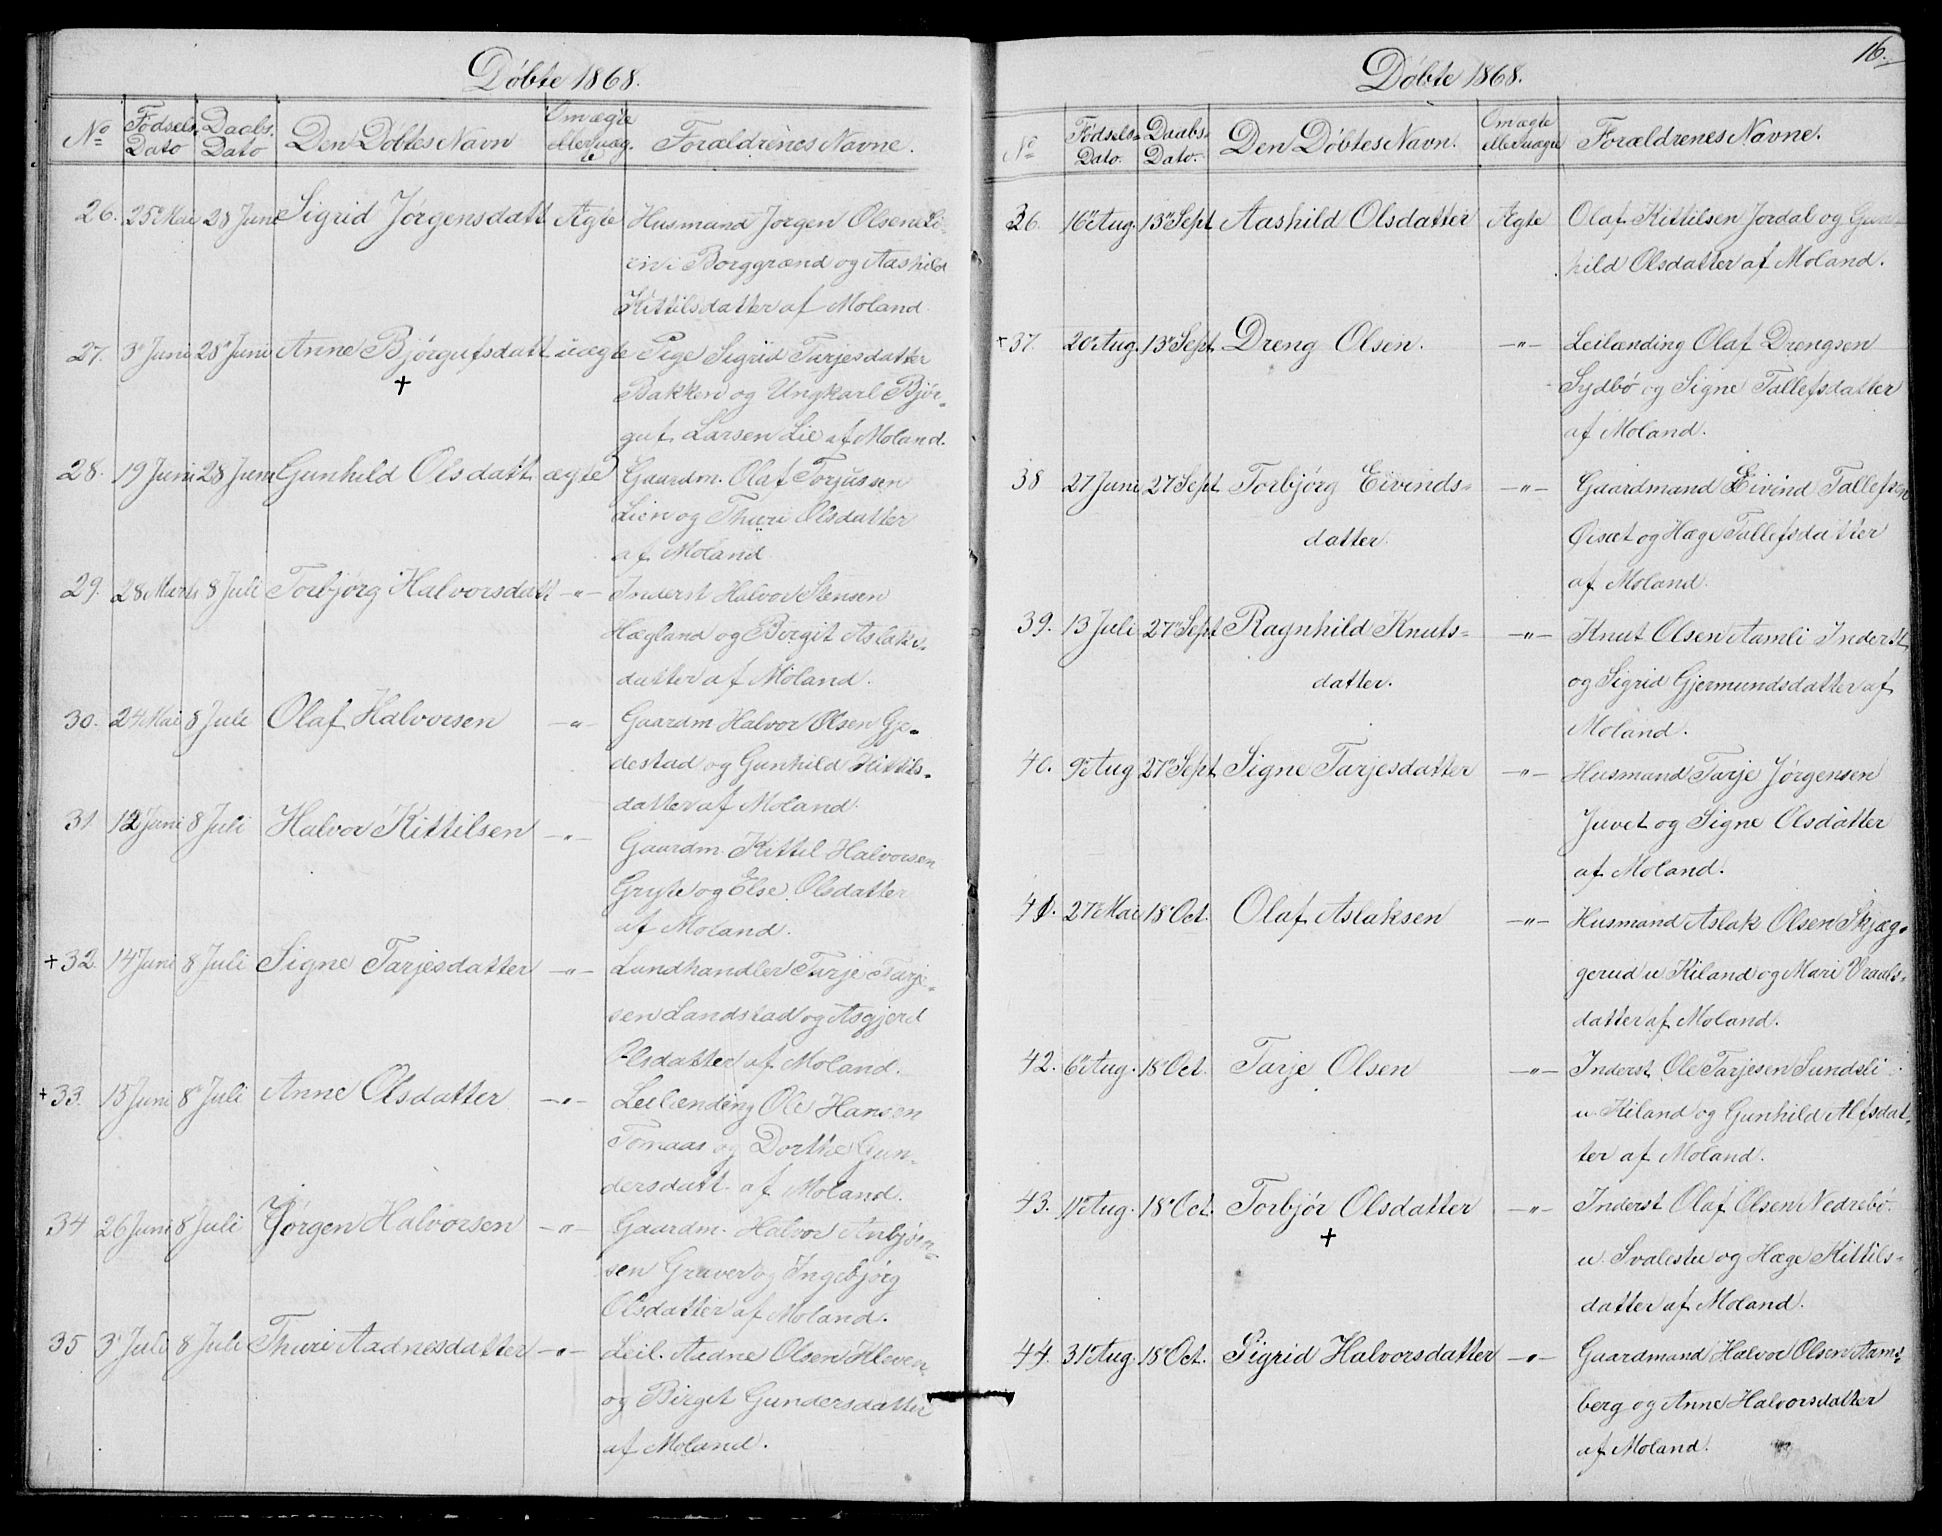 Døbte 1868.
No
Fødsels-
Dato
Daabs-
Dato
Den Døbtes Navn
Om ægte
eller uæg-
te
Forældrenes Navne.
26. 25de Mai 28 Juni Sigrid Jørgensdatt Ægte Husmand Jørgen Olsen Li-
en i Borggrænd og Aashild
Kittilsdatter af Moland.
27. 3de Juni 28de Juni Anne Bjørgufsdatt uægte Pige Sigrid Tarjesdatter
+
Bakken og Ungkarl Bjør-
guf Larsen Lie af Moland.
28. 19 Juni 28 Juni Gunhild Olsdatt. ægte Gaardm. Olaf Torjussen
Lien og Thuri Olsdatter
af Moland
29. 28 Marts 8 Juli Torbjørg Halvorsdatt -"- Inderst Halvor Stensen
Hægland og Borgit Aslaks-
datter af Moland.
30. 24 Mai 8 Juli Olaf Halvorsen -"- Gaardm Halvor Olsen Gje-
destad og Gunhild Kittils-
datter af Moland.
31 12 Juni 8 Juli Halvor Kittilsen -"- Gaardm. Kittil Halvorsen
Gryte og Else Olsdatter
af Moland.
+32. 14 Juni 8 Juli Signe Tarjesdatter -"- Landhandler Tarje Tarje-
sen Landstad og Asgjerd
Olsdatter af Moland.
+33. 15 Juni 8 Juli Anne Olsdatter -"- Leilænding Ole Hansen
Tomaas og Dorthe Gun-
dersdatt. af Moland.
34 26 Juni 8 Juli Jørgen Halvorsen -"- Gaardm. Halvor Anbjørn-
sen Graver og Ingebjørg
Olsdatter af Moland.
35 3 Juli 8 Juli Thuri Aadnesdatter -"- Leil. Aadne Olsen Kleven
og Birgit Gundersdatter
af Moland.
16.
Døbte 1868.
No
Fødsels-
Dato.
Daabs-
Dato.
Den Døbtes Navn.
Om ægte
eller uægte
Forældrenes Navne.
36. 16de Aug. 13de Sept Aashild Olsdatter Ægte Olaf Kittilsen Jordal og Gun-
hild Olsdatter af Moland.
+37. 20de Aug. 13de Sept. Dreng Olsen. -"- Leilænding Olaf Drengsen
Sydbø og Signe Tallefsdatter
af Moland.
38 27 Juni 27 Sept Torbjørg Eivinds- -"- Gaardmand Eivind Tallefsen
datter.
Øisæt og Hæge Tallefsdatter
af Moland.
39. 13 Juli 27de Sept Ragnhild Knuts- -"- Knut Olsen Aamli Inderst
datter.
og Sigrid Gjermundsdatter af
Moland.
40. 9de Aug 27de Sept Signe Tarjesdatter -"- Husmand Tarje Jørgensen
Juvet og Signe Olsdatter
af Moland.
41. 27de Mai 18de Oct. Olaf Aslaksen -"- Husmand Aslak Olsen Skjæg-
gerud u. Kiland og Mari Vraals-
datter af Moland.
42. 6de Aug. 18de Oct. Tarje Olsen -"- Inderst Ole Tarjesen Sundsli
u. Kiland og Gunhild Alfsdat-
ter af Moland.
43. 11 Aug. 18de Oct. Torbjør Olsdatter -"- Inderst Olaf Olsen Nedrebø
+
u. Svalestu og Hæge Kittils-
datter af Moland.
44. 31 Aug. 18 Oct. Sigrid Halvorsdatter -"- Gaardmand Halvor Olsen Aams-
berg og Anne Halvorsdatter
af Moland.